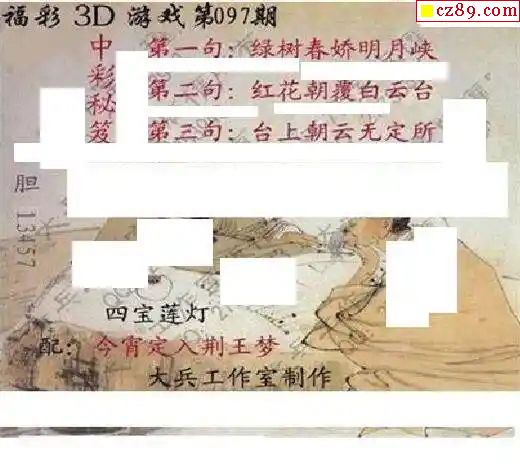 cz89.com
福彩 3D 游戏第097期
中彩秘笈
第一句：绿树春娇明月峡
第二句：红花朝覆白云台
第三句：台上朝云无定所
胆 13457
四宝莲灯
配：今宵定入荆王梦
大兵工作室制作